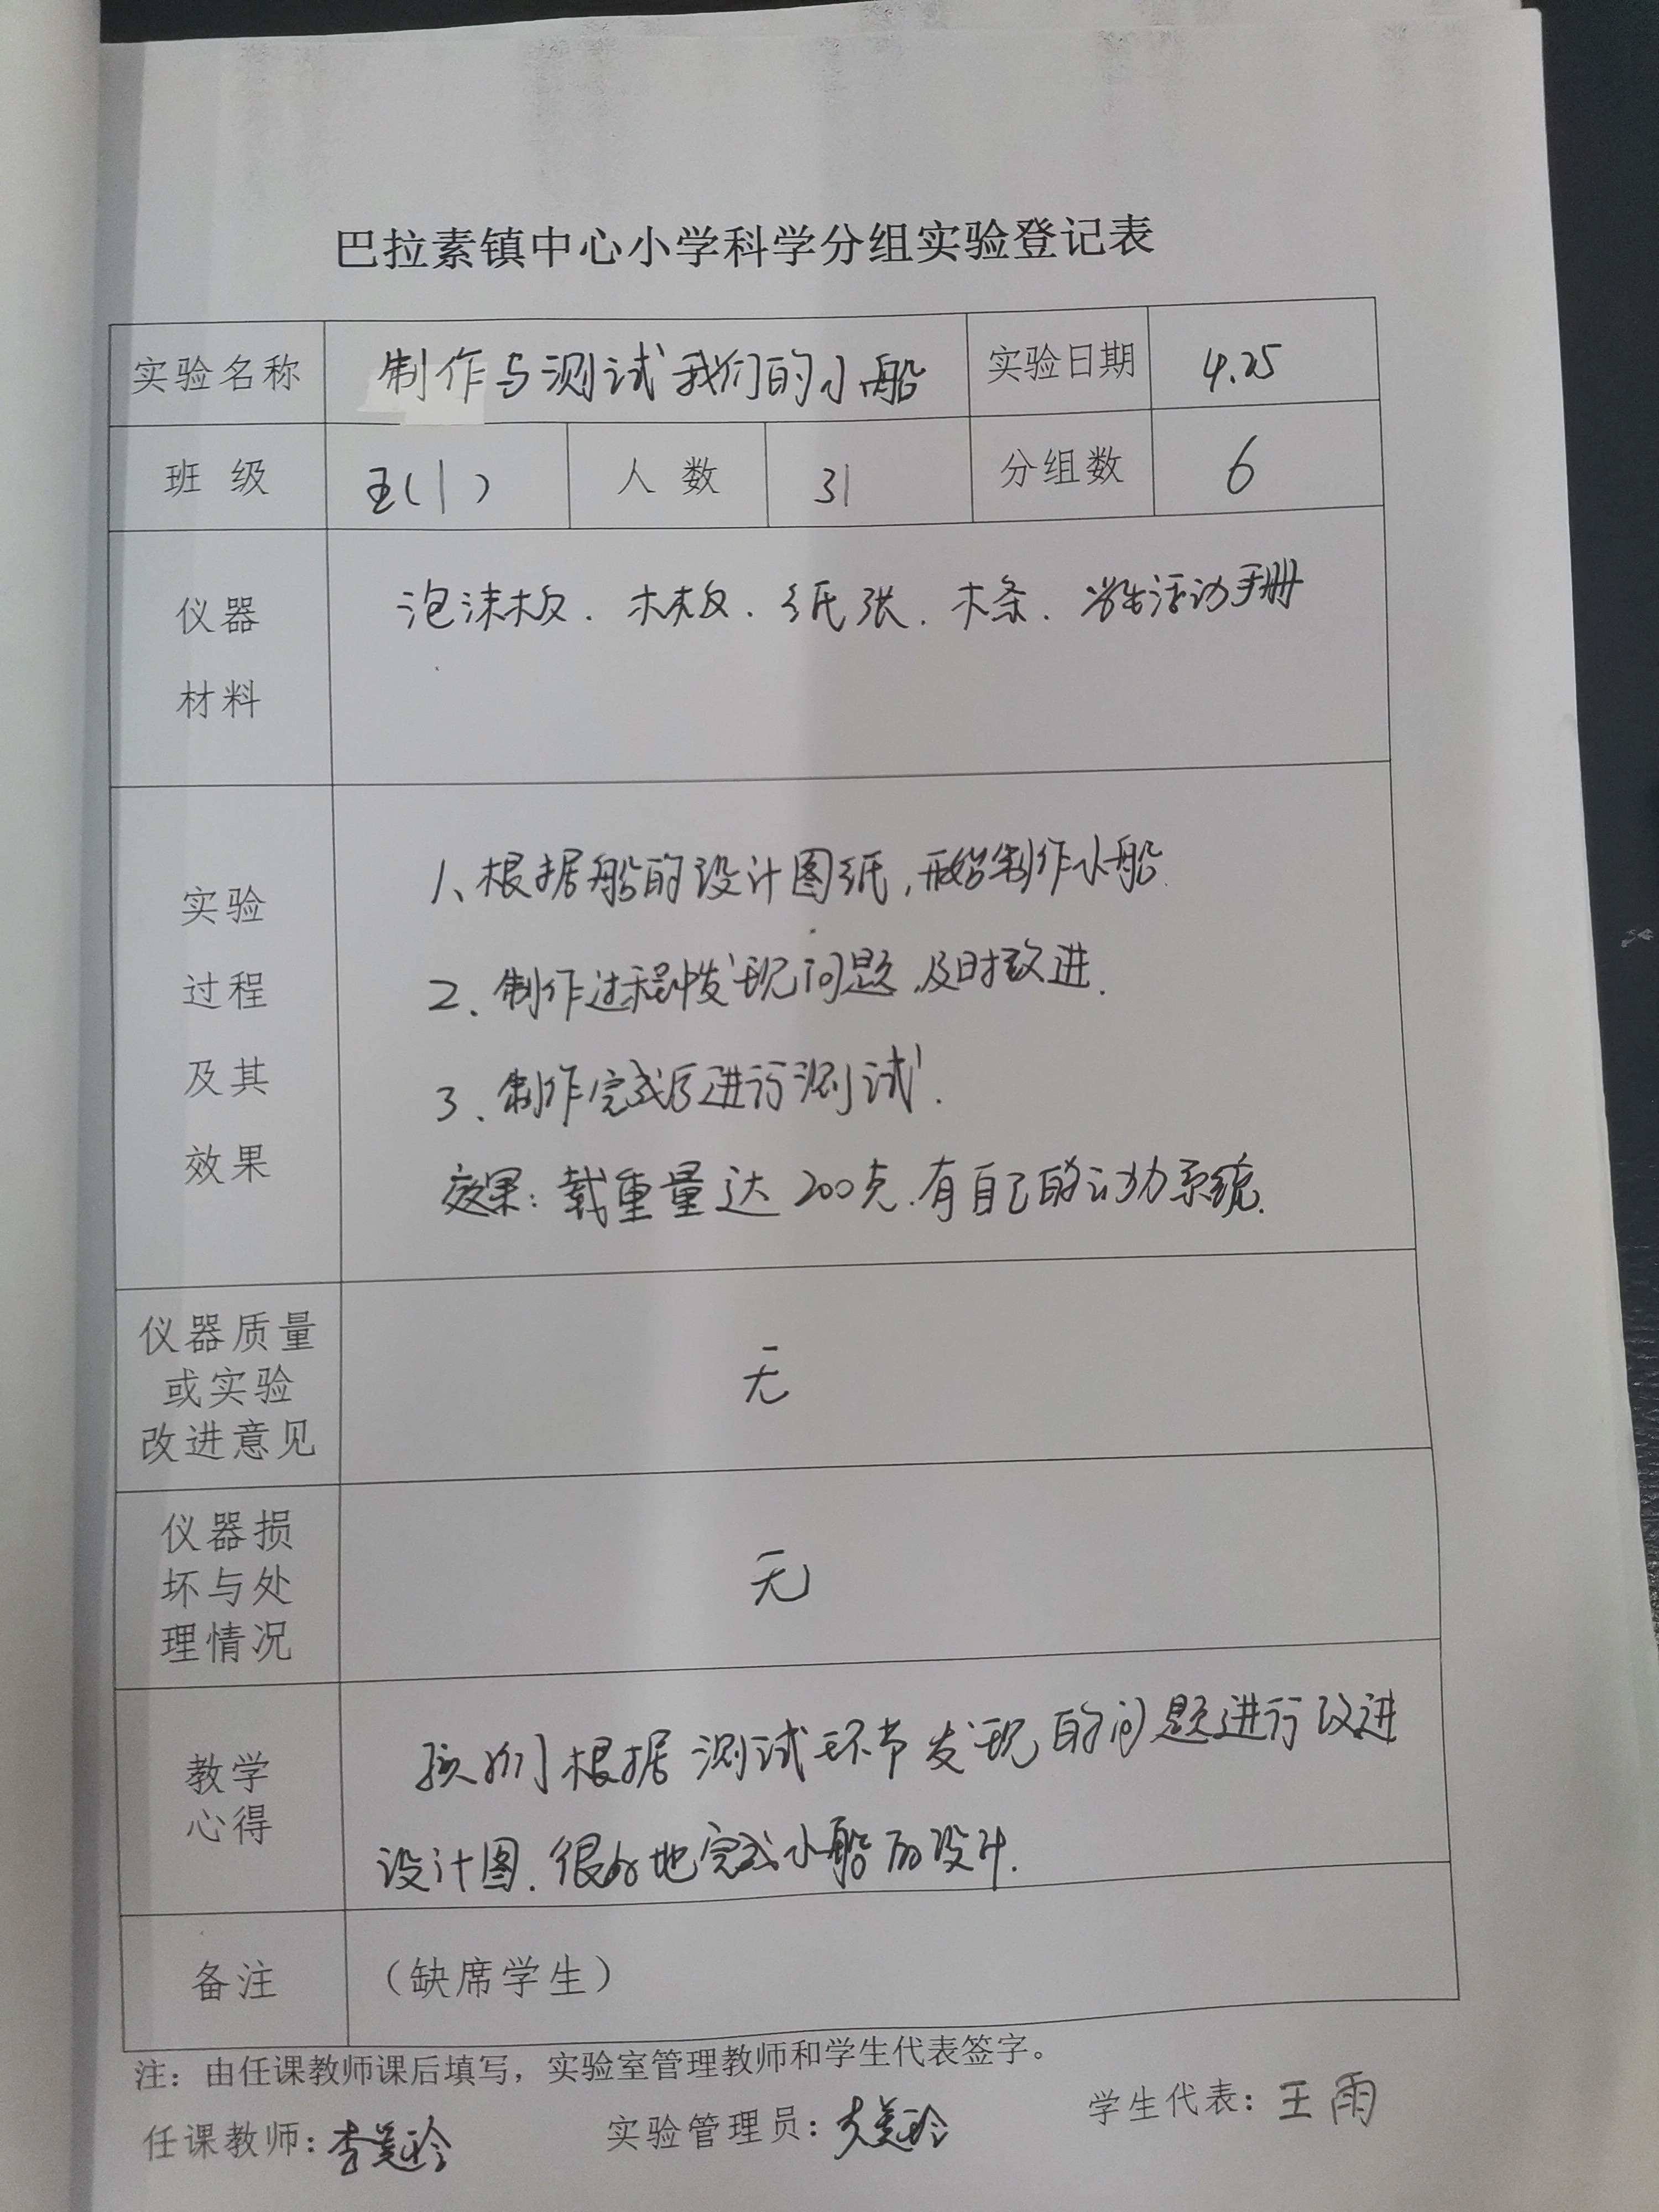 巴拉素镇中心小学科学分组实验登记表
实验名称 制作与测试我们的小船 实验日期 4.25
班 级 五(1) 人 数 31 分组数 6
仪器
材料
泡沫板、木板、纸张、木条、学生活动手册
实验
过程
及其
效果
1、根据船的设计图纸,开始制作小船.
2、制作过程中发现问题,及时改进.
3、制作完成后进行测试.
效果:载重量达200克.有自己的动力系统.
仪器质量
或实验
改进意见
无
仪器损
坏与处
理情况
无
教学
心得
孩子们根据测试环节发现的问题进行改进
设计图.很好地完成小船的设计.
备注 (缺席学生)
注:由任课教师课后填写,实验室管理教师和学生代表签字。
任课教师: 实验管理员: 学生代表:王雨